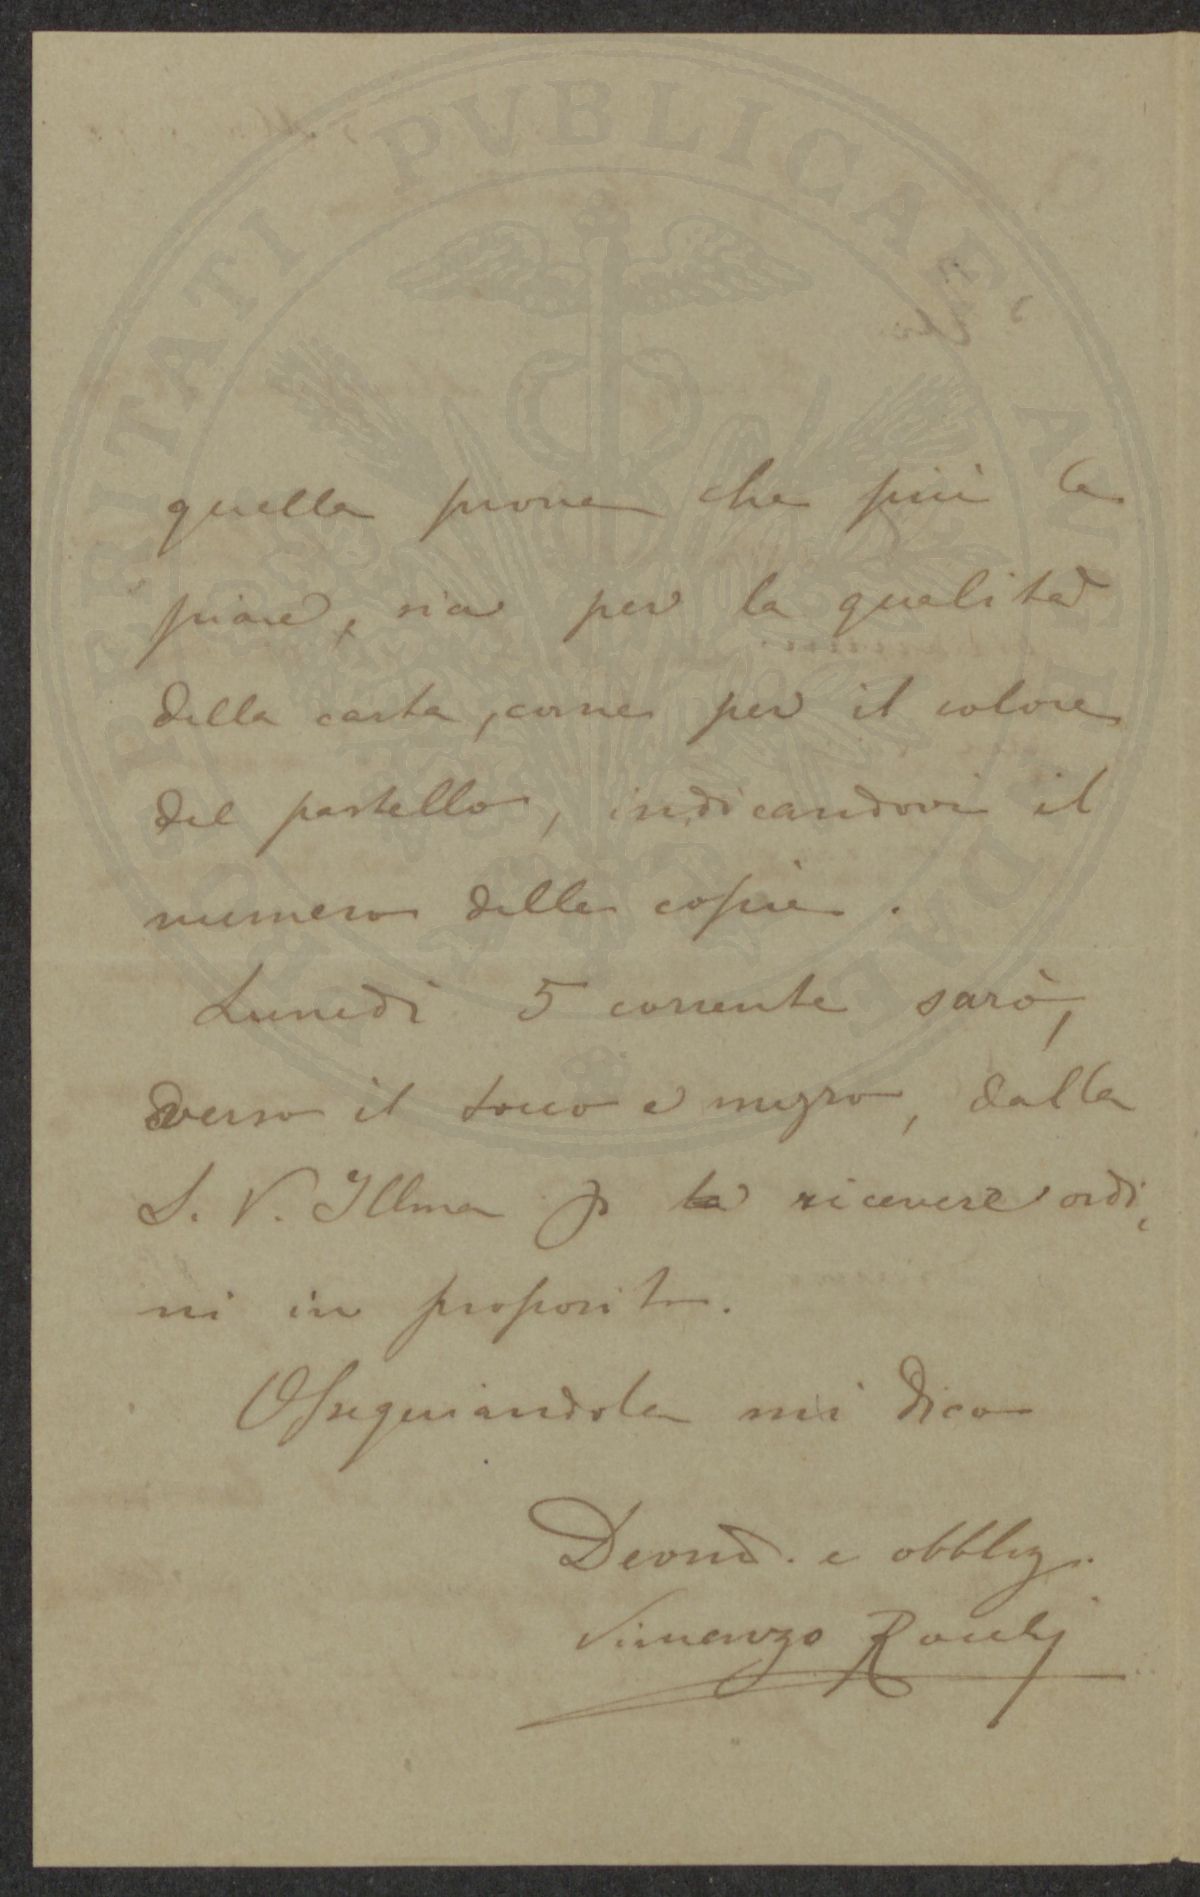 PROSPERITATI PVBLICAE AVGENDAE
quella prova che più le
piace, sia per la qualità
della carta, come per il colore
del pastello, indicandovi il
numero delle copie.
Lunedì 5 corrente sarò,
verso il tocco e mezzo, dalla
S. V. Illma p ricevere ordi,
ni in proposito.
Ossequiandola mi dico
Devmo. e obblig.
Vincenzo